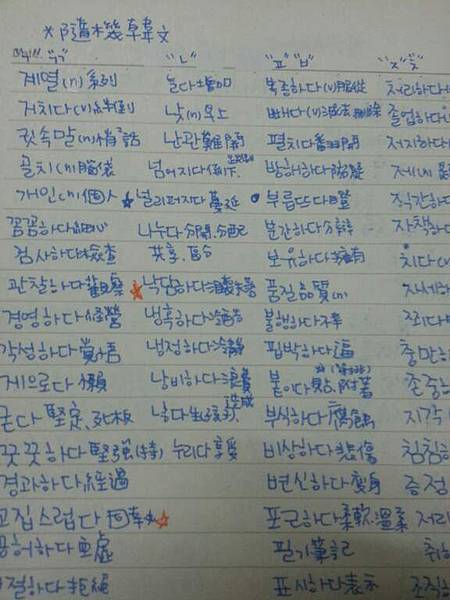 *隨機韓文
"ㄱ" "ㄴ" "ㅍ" "ㅂ" "ㅈ" "ㅊ"
계열(n)系列 늘다增加 복종하다(v)服從 처리하다
거치다(v) 낮(n) 빼다(v)刪除 졸업하다
귓속말(n)肖話 난관難關 펼치다 저지하다
골치(n)腦袋 넘어지다倒下 방해하다妨礙
개인(n)個人 널리퍼지다蔓延 부릅뜨다瞪 직감하다
꼼꼼하다細心 나누다分開.分配 분간하다分辨 자책하
검사하다檢查 共享.區分 보유하다擁有 치다(
관찰하다觀察 낙담하다 품질品質(n) 자세하
경영하다經營 냉혹하다冷酷 불행하다不幸 쪼다
각성하다覺悟 냉정하다冷靜 핍박하다逼 충만하
게으르다懶 낭비하다浪費 붙이다 附著 존중하
굳다堅定.死板 낳다生孩子.造成 부식하다腐蝕 지각
꿋꿋하다堅強 누리다享受 비상하다悲傷 침침하
경과하다經過 변신하다變身 증정
고집스럽다固執 포근하다柔軟.溫柔 저리
공허하다空虛 필기筆記 취하
거절하다拒絕 표시하다表示 조직하